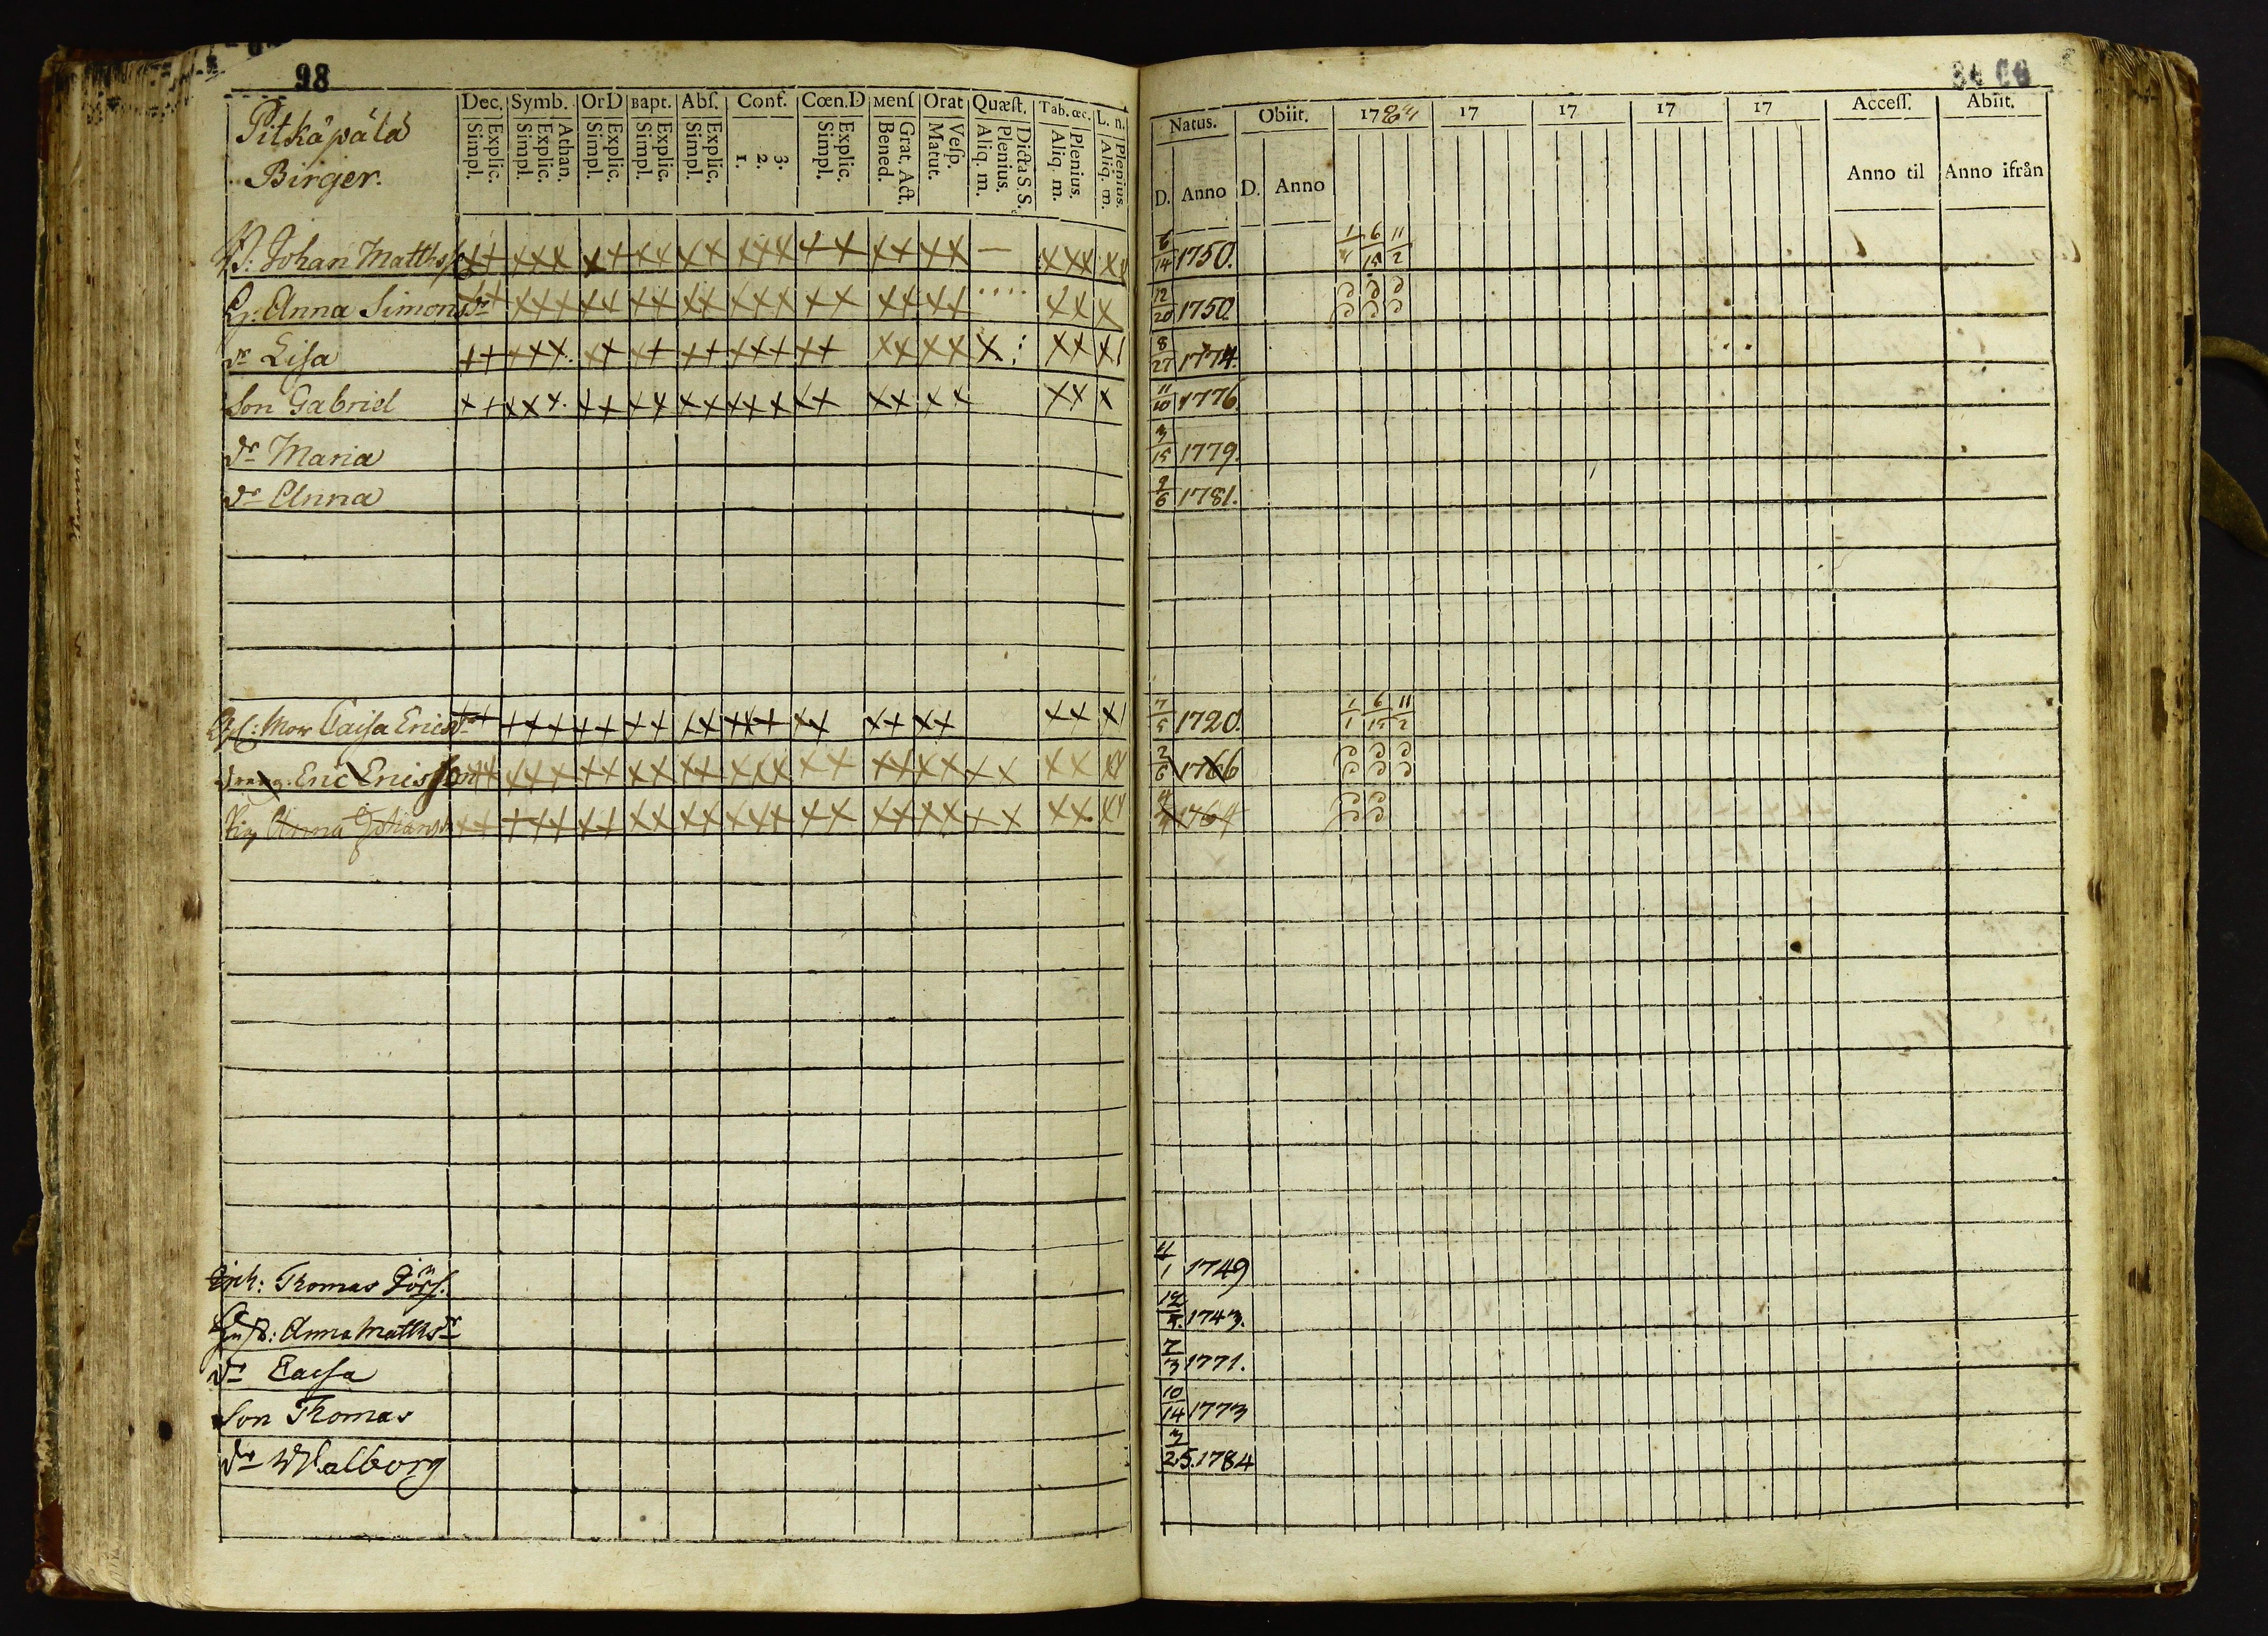 98
Pitkäpälä
Birger.
Dec. Symb. OrD Bapt. Abſ. Conf. Cœn.D Menſ Orat Quæſt. Tab.œc. L. n.
Explic. Simpl. Athan. Explic. Simpl. Explic. Simpl. Explic. Simpl. Explic. Simpl. 3. 2. 1. Explic. Simpl. Grat. Act. Bened. Veſp. Matut. Dicta S S. Plenius. Aliq. m. Plenius. Aliq. m. Plenius. Aliq. m.
Natus. Obiit. 1784 17 17 17 17 Acceſſ. Abiit.
D. Anno D. Anno Anno til Anno ifrån
B: Johan Matthss 6/14 1750. 1 6 11
15 2
H: Anna Simonsdr 12/20 1750
dr Lisa 8/27 1774.
Son Gabriel 11/10 1776.
dr Maria 3/15 1779.
dr Anna 9/6 1781.
Mor Caisa Ericsdr 7/5 1720. 1/1 6/15 11/2
dräng. Eric Ericsson 2/6 1766
Pig Anna Johansdr 1764
Inh: Thomas Görs. 11/1 1749
Hust: Anna Mathsdr 1743.
dr Caisa 7/3 1771.
Son Thomas 10/14 1773
dr Walborg 3/25. 1784